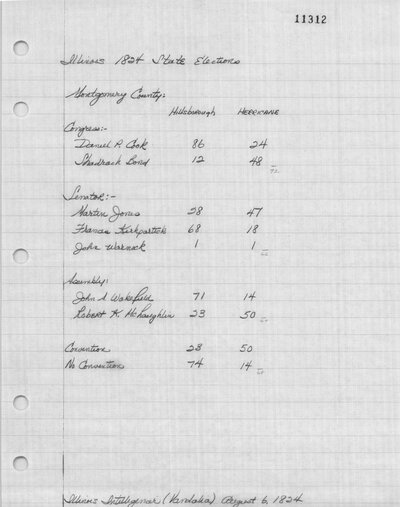 11312
Illinois 1824 State Elections
Montgomery County:
Hillsborough Herricane
Congress:-
Daniel P. Cook 86 24
Shadrach Bond 12 48
72
Senator:-
Martin Jones 28 47
Francis Kirkpatrick 68 18
John Warnock 1 1
Assembly:
John A Wakefield 71 14
Robert K. McLaughlin 23 50
Convention 28 50
No Convention 74 14
Illinois Intelligencer (Vandalia) August 6, 1824